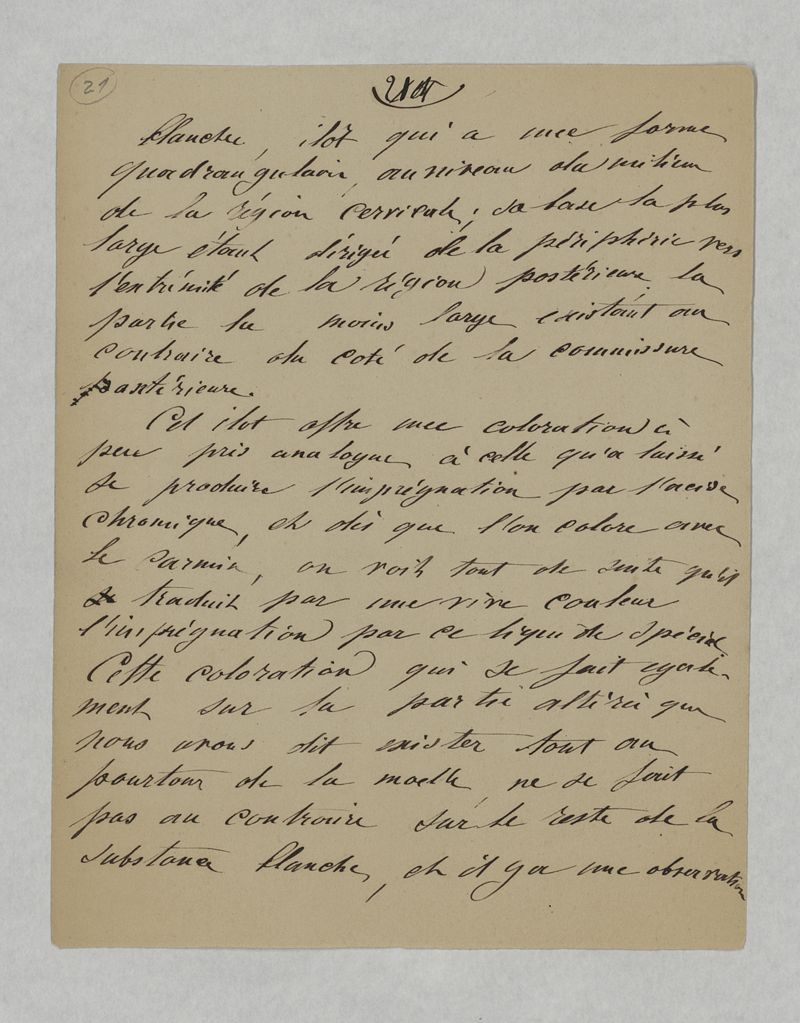 21
blanche, ilot qui a une forme
quadrangulaire, au niveau du milieu
de la région cervicale ; sa base la plus
large étant dirigée de la périphérie vers
l'extrémité de la région postérieure, la
partie la moins large existant au
contraire du coté de la commissure
postérieure.
Cet ilot offre une coloration à
peu près analogue à celle qu'a laissé
se produire l'imprégnation par l'acide
chromique, et dès que l'on colore avec
le carmin, on voit tout de suite qu'il
traduit par une vive couleur
l'imprégnation par ce liquide spécial
Cette coloration qui se fait égale-
ment sur la partie altérée que
nous avons dit exister tout au
pourtour de la moelle, ne se fait
pas au contraire sur le reste de la
substance blanche, et il y a une observation